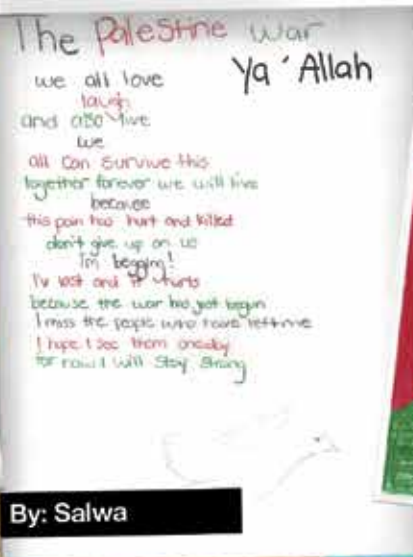 The Palestine War
Ya 'Allah
we all love
laugh
and also live
we
all can survive this
together forever we will live
because
this pain has hurt and killed
don't give up on us
I'm begging!
I've lost and it hurts
because the war has just begun
I miss the people who have left me
I hope I see them oneday
for now I will Stay Strong
By: Salwa